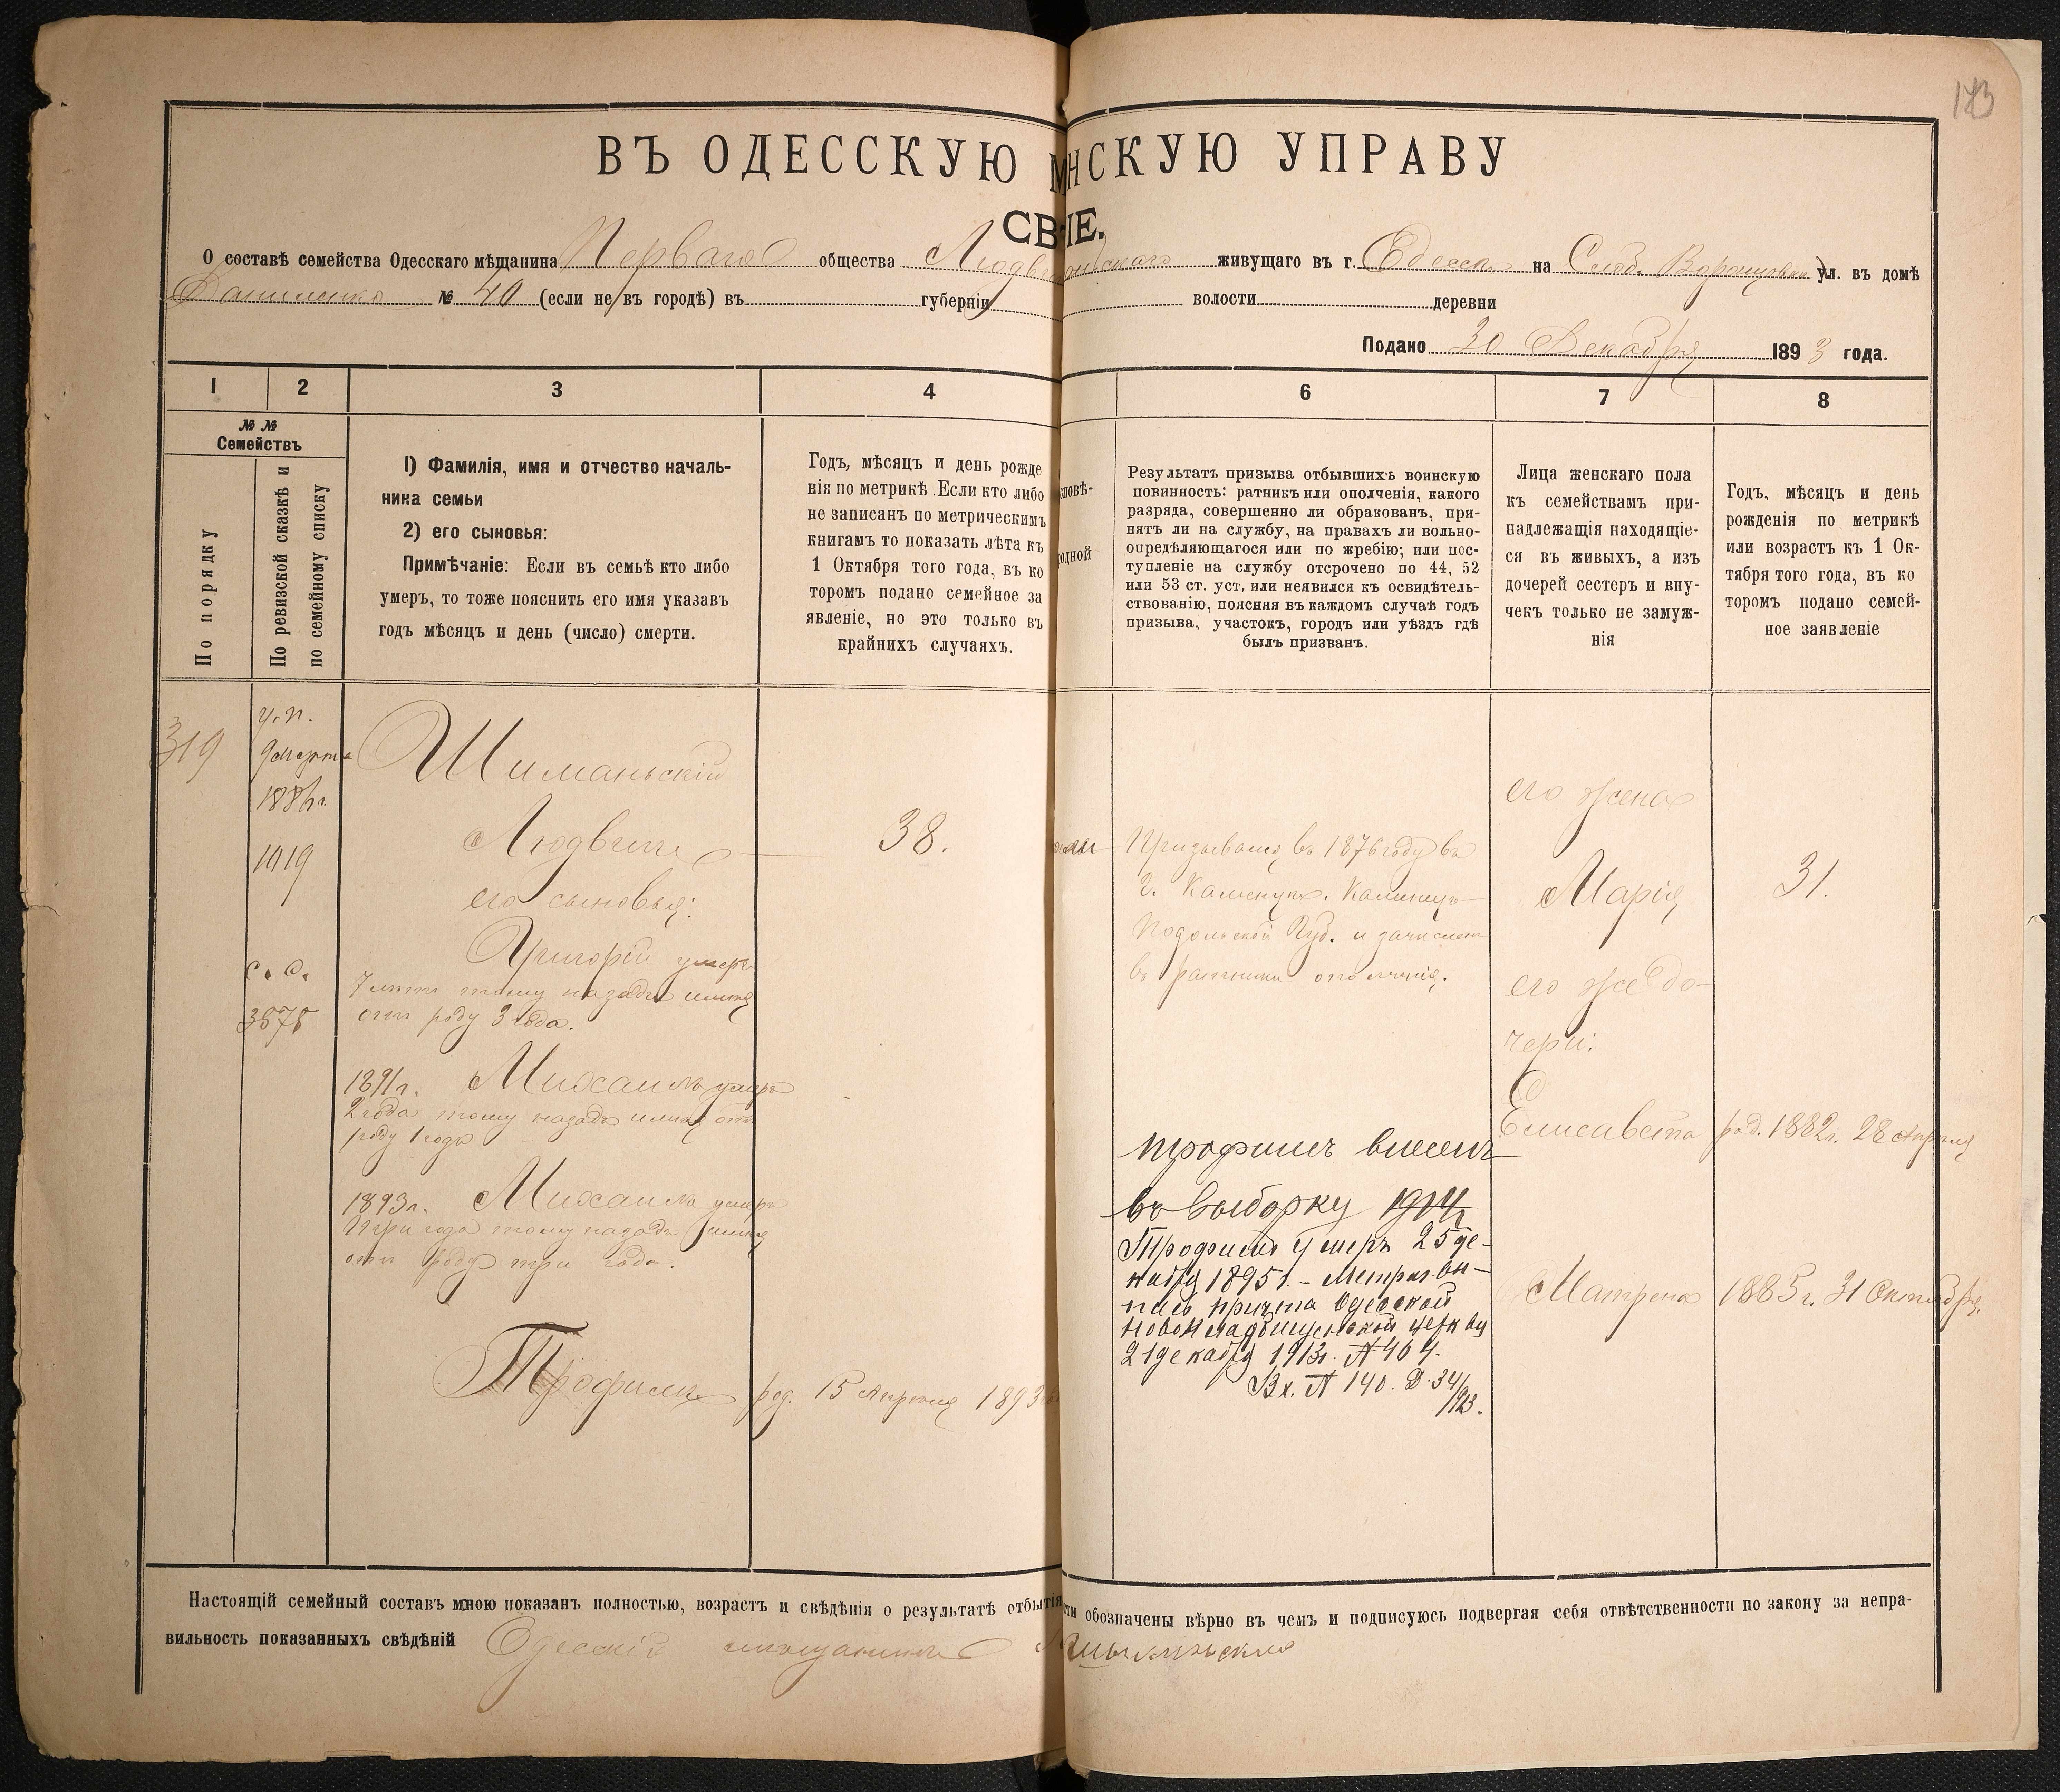 183
ВЪ ОДЕССКУЮ М НСКУЮ УПРАВУ
СВ ІЕ.
О составѣ семейства Одесскаго мѣщанина Перваго общества живущаго въ г. Одессѣ на Слоб. Воронцовка ул. въ домѣ
Даниленко № 40 (если не въ городѣ) въ губерніи волости деревни
Подано 30 Декабря 1893 года.
1 2 3 4 6 7 8
№ №
Семействъ
По порядку
По ревизской сказкѣ и
по семейному списку
1) Фамилія, имя и отчество началь-
ника семьи
2) его сыновья:
Примѣчаніе: Если въ семьѣ кто либо
умеръ, то тоже пояснить его имя указавъ
годъ мѣсяцъ и день (число) смерти.
Годъ, мѣсяцъ и день рожде
нія по метрикѣ. Если кто либо
не записанъ по метрическимъ
книгамъ то показать лѣта къ
1 Октября того года, въ ко
торомъ подано семейное за
явленіе, но это только въ
крайнихъ случаяхъ.
сповѣ-
одной
Результатъ призыва отбывшихъ воинскую
повинность: ратникъ или ополченія, какого
разряда, совершенно ли обракованъ, при-
нятъ ли на службу, на правахъ ли вольно-
опредѣляющагося или по жребію; или пос-
тупленіе на службу отсрочено по 44, 52
или 53 ст. уст, или неявился къ освидѣтель-
ствованію, поясняя въ каждомъ случаѣ годъ
призыва, участокъ, городъ или уѣздъ гдѣ
былъ призванъ.
Лица женскаго пола
къ семействамъ при-
надлежащія находящіе-
ся въ живыхъ, а изъ
дочерей сестеръ и вну-
чекъ только не замуж-
нія
Годъ, мѣсяцъ и день
рожденія по метрикѣ
или возрастъ къ 1 Ок-
тября того года, въ ко
торомъ подано семей-
ное заявленіе
319
у. п.
9 марта
1886 г.
1919
с. с.
3575
Шиманьскій
Людвигъ
его сыновья:
Григорій умеръ
7 лѣтъ тому назадъ имѣя
отъ роду 3 года.
1891 г. Михаилъ умеръ
2 года тому назадъ имѣя отъ
роду 1 годъ
1893 г. Михаилъ умеръ
три года тому назадъ имѣя
отъ роду три года.
Трофимъ род. 15 Апрѣля 1893
38.
Призывался въ 1876 году въ
г. Каменцѣ. Каменец-
Подольской Губ. и зачисленъ
въ ратники ополченія.
Трофимъ внесенъ
въ выборку 1914 г
Трофимъ умеръ 25 де-
кабря 1895 г. - Метрич. вы-
пись причта Одесской
новокладбищенской церкви
21 декабря 1913 г. № 464.
Вх. № 140. Д. 34/913.
его жена
Марія 31.
его же до-
чери:
Елисавета род. 1882 г. 28 Апрѣля
Матрена 1885 г. 31 Октября.
Настоящій семейный составъ мною показанъ полностью, возрастъ и свѣдѣнія о результатѣ отбытія сти обозначены вѣрно въ чемъ и подписуюсь подвергая себя отвѣтственности по закону за непра-
вильность показанныхъ свѣдѣній Одесскій мѣщанинъ